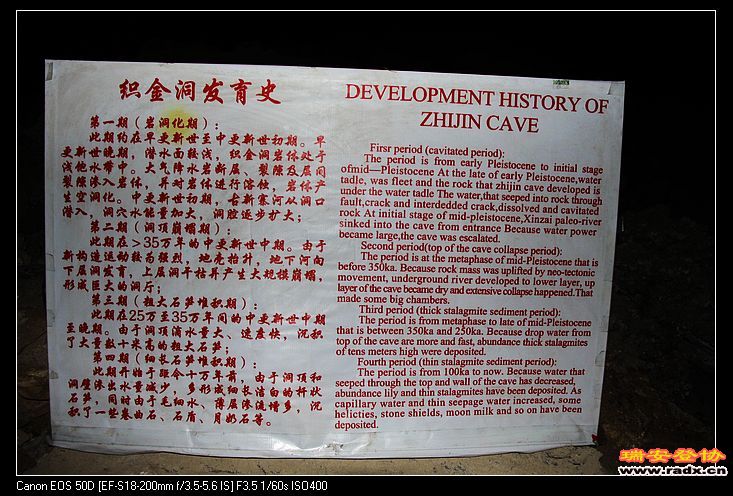 织金洞发育史
第一期（岩洞化期）：
此期约在早更新世至中更新世初期。早
更新世晚期，潜水面较浅，织金洞岩体处于
浅他水带中。大气降水岩断层、裂隙及层间
裂隙渗入岩体，并对岩体进行溶蚀，岩体产
生空洞化。中更新世初期，古新寨河从洞口
潜入，洞穴水能量加大，洞腔逐步扩大；
第二期（洞顶崩塌期）：
此期在＞35万年的中更新世中期。由于
新构造运动较为强烈，地壳抬升，地下河向
下层洞发育，上层洞干枯并产生大规模崩塌，
形成巨大的洞厅；
第三期（粗大石笋堆积期）：
此期在25万至35万年间的中更新世中期
至晚期。由于洞顶滴水量大、速度快，沉积
了大量数十米高的粗大石笋；
第四期（细长石笋堆积期）：
此期开始于距今十万年前，由于洞顶和
洞壁渗出水量减少，多形成细长洁白的杆状
石笋，同时由于毛细水、薄层渗流增多，沉
积了一些卷曲石、石盾、月奶石等。
DEVELOPMENT HISTORY OF
ZHIJIN CAVE
Firsr period (cavitated period):
The period is from early Pleistocene to initial stage
ofmid—Pleistocene At the late of early Pleistocene,water
tadle, was fleet and the rock that zhijin cave developed is
under the water tadle The water,that seeped into rock through
fault,crack and interdedded crack,dissolved and cavitated
rock At initial stage of mid-pleistocene,Xinzai paleo-river
sinked into the cave from entrance Because water power
became large,the cave was escalated.
Second period(top of the cave collapse period):
The period is at the metaphase of mid-Pleistocene that is
before 350ka. Because rock mass was uplifted by neo-tectonic
movement, underground river developed to lower layer, up
layer of the cave became dry and extensive collapse happened.That
made some big chambers.
Third period (thick stalagmite sediment period):
The period is from metaphase to late of mid-Pleistocene
that is between 350ka and 250ka. Because drop water from
top of the cave are more and fast, abundance thick stalagmites
of tens meters high were deposited.
Fourth period (thin stalagmite sediment period):
The period is from 100ka to now. Because water that
seeped through the top and wall of the cave has decreased,
abundance lily and thin stalagmites have been deposited. As
capillary water and thin seepage water increased, some
helicties, stone shields, moon milk and so on have been
deposited.
瑞安登协
www.radx.cn
Canon EOS 50D [EF-S18-200mm f/3.5-5.6 IS] F3.5 1/60s ISO400